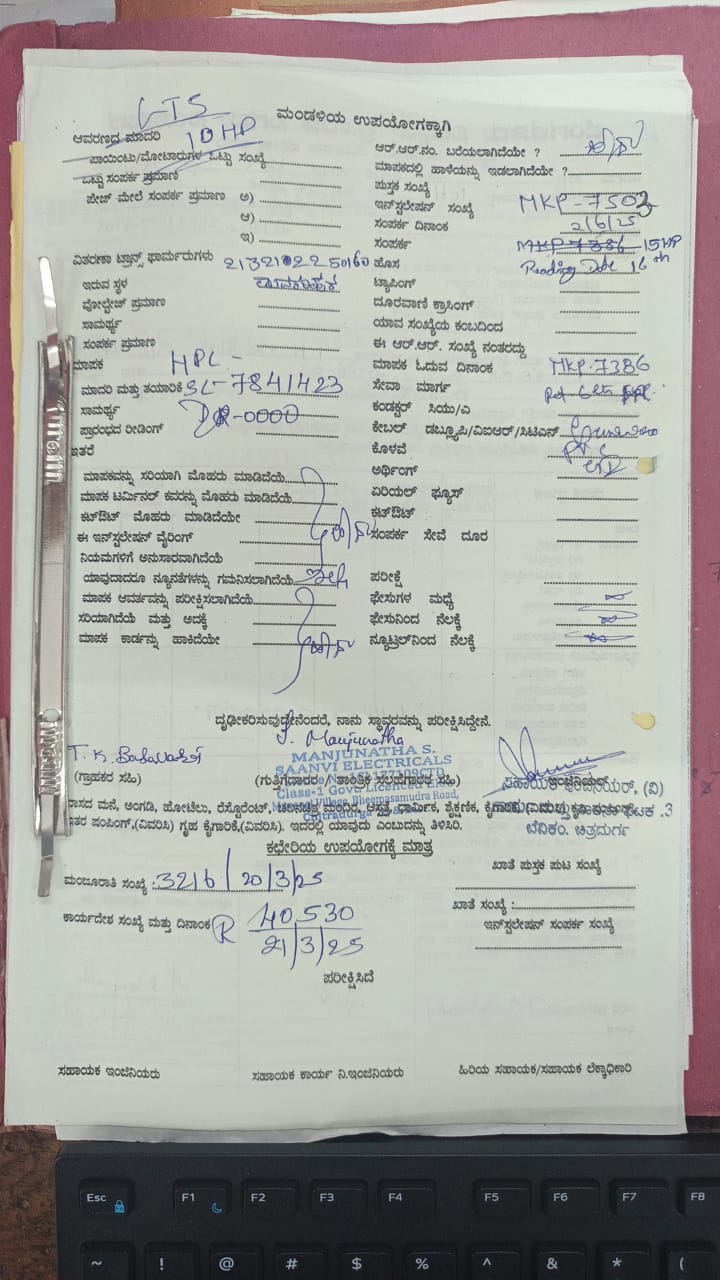 LT5
ಮಂಡಳಿಯ ಉಪಯೋಗಕ್ಕಾಗಿ
ಆವರಣದ ಮಾದರಿ 10 HP
ಪಾಯಿಂಟು/ಮೋಟಾರುಗಳ ಒಟ್ಟು ಸಂಖ್ಯೆ
ಒಟ್ಟು ಸಂಪರ್ಕ ಪ್ರಮಾಣ
ಪೇಜ್ ಮೇಲೆ ಸಂಪರ್ಕ ಪ್ರಮಾಣ ಅ)
ಆ)
ಇ)
ವಿತರಣಾ ಟ್ರಾನ್ಸ್ ಫಾರ್ಮರುಗಳು 21321022250160
ಇರುವ ಸ್ಥಳ
ವೋಲ್ಟೇಜ್ ಪ್ರಮಾಣ
ಸಾಮರ್ಥ್ಯ
ಸಂಪರ್ಕ ಪ್ರಮಾಣ
ಮಾಪಕ HPL -
ಮಾದರಿ ಮತ್ತು ತಯಾರಿಕೆ SL-7841423
ಸಾಮರ್ಥ್ಯ
ಪ್ರಾರಂಭದ ರೀಡಿಂಗ್ -0000
ಇತರೆ
ಮಾಪಕವನ್ನು ಸರಿಯಾಗಿ ಮೊಹರು ಮಾಡಿದೆಯೆ
ಮಾಪಕ ಟರ್ಮಿನಲ್ ಕವರನ್ನು ಮೊಹರು ಮಾಡಿದೆಯೆ
ಕಟ್‌ಔಟ್ ಮೊಹರು ಮಾಡಿದೆಯೇ
ಈ ಇನ್‌ಸ್ಟಲೇಷನ್ ವೈರಿಂಗ್
ನಿಯಮಗಳಿಗೆ ಅನುಸಾರವಾಗಿದೆಯೆ
ಯಾವುದಾದರೂ ನ್ಯೂನತೆಗಳನ್ನು ಗಮನಿಸಲಾಗಿದೆಯೆ ಇಲ್ಲ
ಮಾಪಕ ಆವರ್ತವನ್ನು ಪರೀಕ್ಷಿಸಲಾಗಿದೆಯೆ
ಸರಿಯಾಗಿದೆಯೆ ಮತ್ತು ಅದಕ್ಕೆ
ಮಾಪಕ ಕಾರ್ಡನ್ನು ಹಾಕಿದೆಯೇ ಹೌದು
ಆರ್.ಆರ್.ನಂ. ಬರೆಯಲಾಗಿದೆಯೇ ? ಹೌದು
ಮಾಪಕದಲ್ಲಿ ಹಾಳೆಯನ್ನು ಇಡಲಾಗಿದೆಯೇ ?
ಪುಸ್ತಕ ಸಂಖ್ಯೆ
ಇನ್‌ಸ್ಟಲೇಷನ್ ಸಂಖ್ಯೆ MKP-7503
ಸಂಪರ್ಕ ದಿನಾಂಕ 2/6/25
ಸಂಪರ್ಕ MKP 7386 15HP
ಹೊಸ Reading Date 16th
ಟ್ಯಾಪಿಂಗ್
ದೂರವಾಣಿ ಕ್ರಾಸಿಂಗ್
ಯಾವ ಸಂಖ್ಯೆಯ ಕಂಬದಿಂದ
ಈ ಆರ್.ಆರ್. ಸಂಖ್ಯೆ ನಂತರದ್ದು
ಮಾಪಕ ಓದುವ ದಿನಾಂಕ MKP.7386
ಸೇವಾ ಮಾರ್ಗ
ಕಂಡಕ್ಟರ್ ಸಿಯು/ಎ
ಕೇಬಲ್ ಡಬ್ಲ್ಯೂಪಿ/ವಿಐಆರ್/ಸಿಟಿಎಸ್
ಕೊಳವೆ PVC
ಅರ್ಥಿಂಗ್
ಏರಿಯಲ್ ಫ್ಯೂಸ್
ಕಟ್‌ಔಟ್
ಸಂಪರ್ಕ ಸೇವೆ ದೂರ
ಪರೀಕ್ಷೆ
ಫೇಸುಗಳ ಮಧ್ಯೆ ∞
ಫೇಸುನಿಂದ ನೆಲಕ್ಕೆ ∞
ನ್ಯೂಟ್ರಲ್‌ನಿಂದ ನೆಲಕ್ಕೆ ∞
ದೃಢೀಕರಿಸುವುದೇನೆಂದರೆ, ನಾನು ಸ್ಥಾವರವನ್ನು ಪರೀಕ್ಷಿಸಿದ್ದೇನೆ.
S. Manjunatha
MANJUNATHA S.
SAANVI ELECTRICALS
(ಗ್ರಾಹಕರ ಸಹಿ)
(ಗುತ್ತಿಗೆದಾರರ / ತಾಂತ್ರಿಕ ಸಲಹೆಗಾರರ ಸಹಿ)
Class-1 Govt Licenced
Village, Bheemasamudra Road,
Chitradurga
ಸಹಾಯಕ ಇಂಜಿನಿಯರ್, (ವಿ)
ಘಟಕ .3
ಬೆವಿಕಂ. ಚಿತ್ರದುರ್ಗ
ವಾಸದ ಮನೆ, ಅಂಗಡಿ, ಹೋಟೆಲು, ರೆಸ್ಟೋರೆಂಟ್, ಚಲನಚಿತ್ರ ಮಂದಿರ, ಆಸ್ಪತ್ರೆ, ಧಾರ್ಮಿಕ, ಶೈಕ್ಷಣಿಕ, ಕೈಗಾರಿಕೆ,
ಇತರ ಪಂಪಿಂಗ್,(ವಿವರಿಸಿ) ಗೃಹ ಕೈಗಾರಿಕೆ,(ವಿವರಿಸಿ). ಇದರಲ್ಲಿ ಯಾವುದು ಎಂಬುದನ್ನು ತಿಳಿಸಿರಿ.
ಕಛೇರಿಯ ಉಪಯೋಗಕ್ಕೆ ಮಾತ್ರ
ಮಂಜೂರಾತಿ ಸಂಖ್ಯೆ : 3216/20/3/25
ಕಾರ್ಯದೇಶ ಸಂಖ್ಯೆ ಮತ್ತು ದಿನಾಂಕ R 40530
21/3/25
ಖಾತೆ ಪುಸ್ತಕ ಪುಟ ಸಂಖ್ಯೆ
ಖಾತೆ ಸಂಖ್ಯೆ :
ಇನ್‌ಸ್ಟಲೇಷನ್ ಸಂಪರ್ಕ ಸಂಖ್ಯೆ
ಪರೀಕ್ಷಿಸಿದೆ
ಸಹಾಯಕ ಇಂಜಿನಿಯರು
ಸಹಾಯಕ ಕಾರ್ಯ ನಿ.ಇಂಜಿನಿಯರು
ಹಿರಿಯ ಸಹಾಯಕ/ಸಹಾಯಕ ಲೆಕ್ಕಾಧಿಕಾರಿ
Esc F1 F2 F3 F4 F5 F6 F7 F8
~ ! @ # $ % ^ & * (